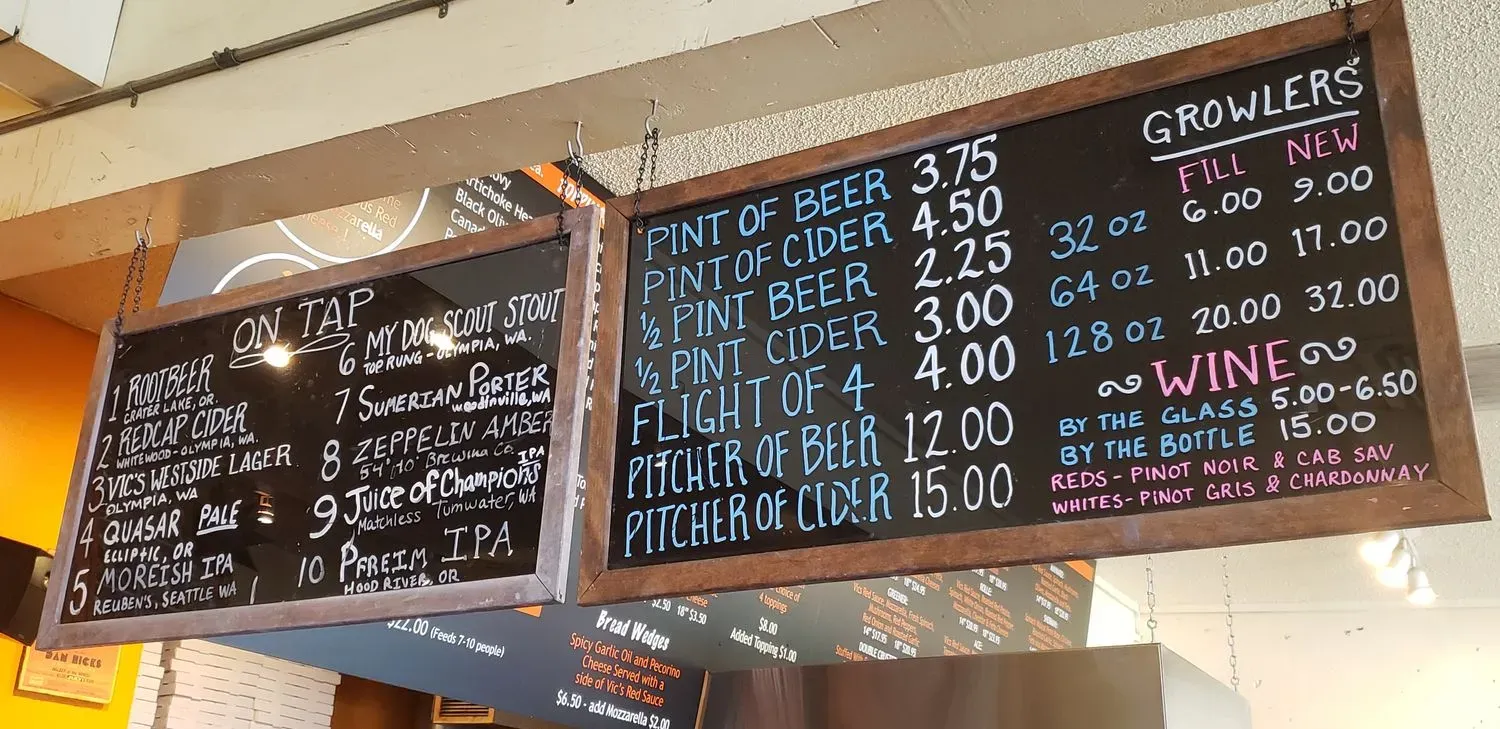 ON TAP
1 ROOTBEER
CRATER LAKE, OR.
2 REDCAP CIDER
WHITEWOOD-OLYMPIA, WA.
3 VIC'S WESTSIDE LAGER
OLYMPIA, WA
4 QUASAR PALE
ECLIPTIC, OR
5 MOREISH IPA
REUBEN'S, SEATTLE WA
6 MY DOG SCOUT STOUT
TOP RUNG-OLYMPIA, WA.
7 SUMERIAN PORTER
WOODINVILLE, WA
8 ZEPPELIN AMBER
54°40' Brewing Co.
9 Juice of Champions IPA
Matchless Tumwater, WA
10 PFREIM IPA
HOOD RIVER, OR
PINT OF BEER 3.75
PINT OF CIDER 4.50
½ PINT BEER 2.25
½ PINT CIDER 3.00
FLIGHT OF 4 4.00
PITCHER OF BEER 12.00
PITCHER OF CIDER 15.00
GROWLERS
FILL NEW
32 oz 6.00 9.00
64 oz 11.00 17.00
128 oz 20.00 32.00
WINE
BY THE GLASS 5.00-6.50
BY THE BOTTLE 15.00
REDS- PINOT NOIR & CAB SAV
WHITES- PINOT GRIS & CHARDONNAY
Artichoke
Black
$22.00 (Feeds 7-10 people)
$2.50 18" $3.50
Bread Wedges
Spicy Garlic Oil and Pecorino
Cheese Served with a
side of Vic's Red Sauce
$6.50 - add Mozzarella $2.00
choice of
4 toppings
$8.00
Added Topping $1.00
DAN HICKS